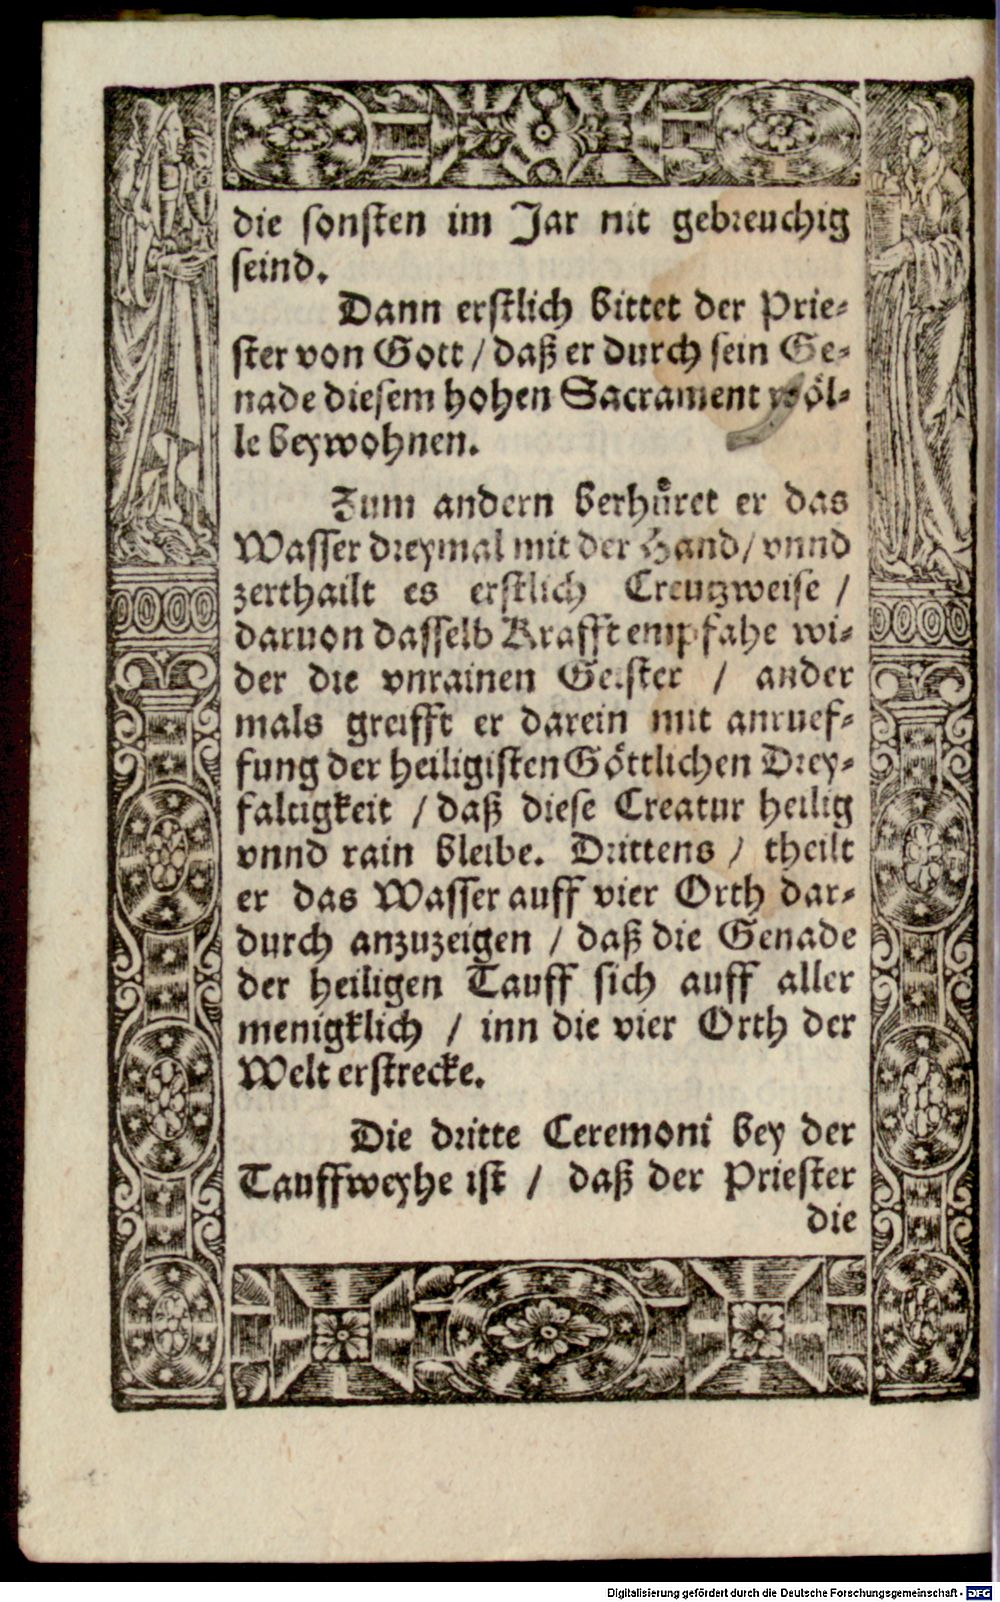 die sonsten im Jar nit gebreuchig
seind.
Dann erstlich bittet der Prie-
ster von Gott / daß er durch sein Ge-
nade diesem hohen Sacrament wöl-
le beywohnen.
Zum andern berhůret er das
Wasser dreymal mit der Hand / vnnd
zerthailt es erstlich Creutzweise /
daruon dasselb Krafft empfahe wi-
der die vnrainen Geister / ander
mals greifft er darein mit anruef-
fung der heiligisten Göttlichen Drey-
faltigkeit / daß diese Creatur heilig
vnnd rain bleibe. Drittens / theilt
er das Wasser auff vier Orth dar-
durch anzuzeigen / daß die Genade
der heiligen Tauff sich auff aller
menigklich / inn die vier Orth der
Welt erstrecke.
Die dritte Ceremoni bey der
Tauffweyhe ist / daß der Priester
die
Digitalisierung gefördert durch die Deutsche Forschungsgemeinschaft - DFG